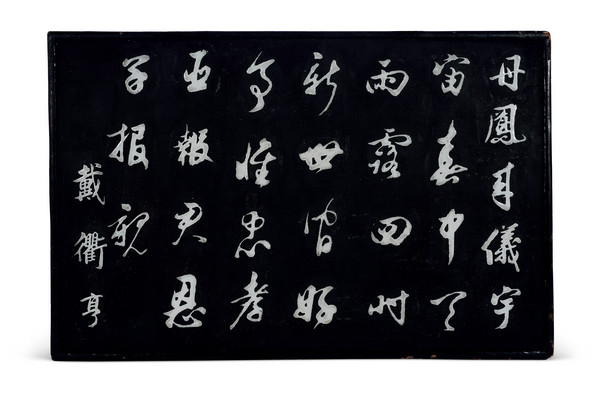 丹鳳來儀宇
宙春中天
雨露四時
新世間好
事惟忠孝
臣報君恩
子報親
戴衢亨